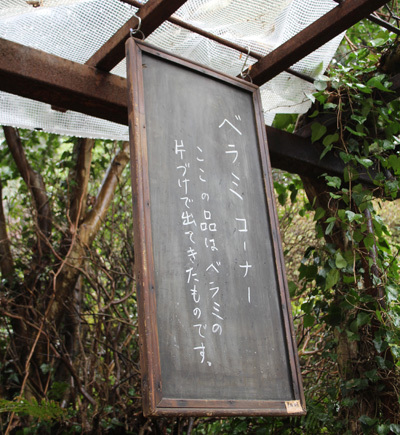 ベラミコーナー
ここの品はベラミの
片づけで出てきたものです。